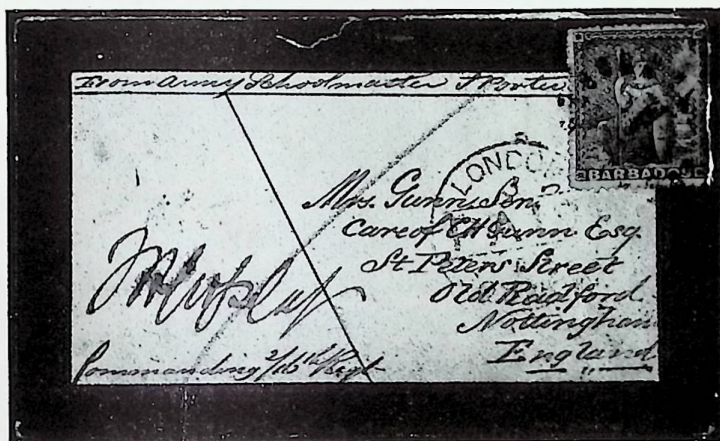 From Army Schoolmaster J Porter
BARBADOES
LONDON
Mrs. Gunn Senr
Care of EH Gunn Esq
St Peters Street
Old Radford
Nottingham
England
Commanding 2/16th Regt